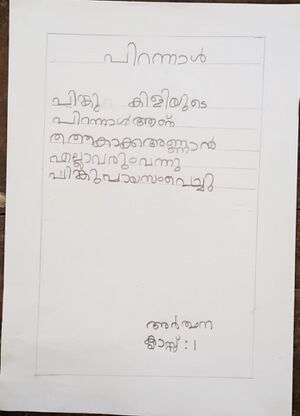 പിറന്നാൾ
ചിങ്കു കിളിയുടെ
പിറന്നാൾആണ്
തത്തകാക്കഅണ്ണാൻ
എല്ലാവരുംവന്നു
പിങ്കുപായസംവെച്ചു
അർത്ഥന
ക്ലാസ്സ് : 1